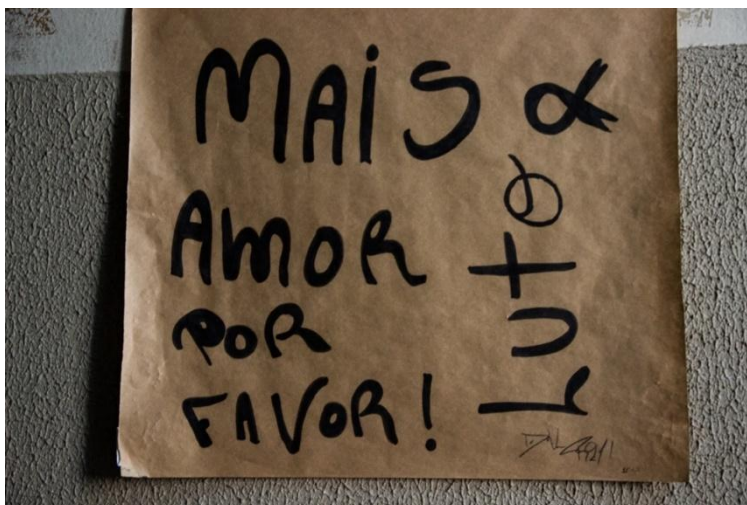 MAiS
AMOR
POR
FAVOR!
Luto